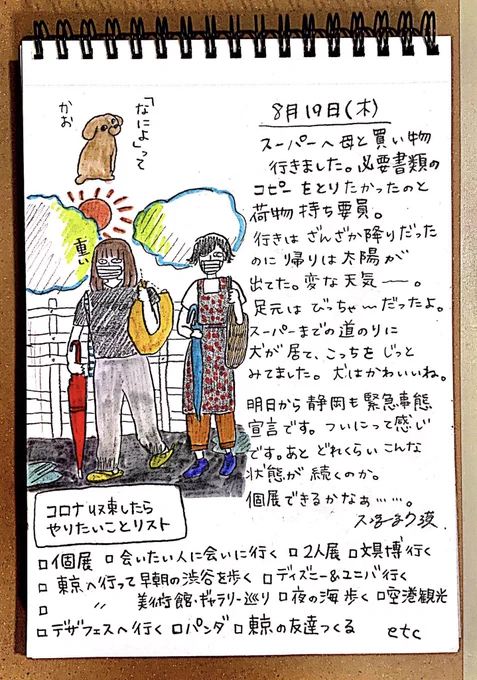 「なによ」って
かお
重い
8月19日(木)
スーパーへ母と買い物
行きました。必要書類の
コピーをとりたかったのと
荷物持ち要員。
行きはざんざか降りだった
のに帰りは太陽が
出てた。変な天気ー。
足元はびっちゃ〜だったよ。
スーパーまでの道のりに
犬が居て、こっちをじっと
みてました。犬はかわいいね。
明日から静岡も緊急事態
宣言です。ついにって感じ
です。あとどれくらいこんな
状態が続くのか。
個展できるかなぁ……。
コロナ収束したら
やりたいことリスト
□個展 □会いたい人に会いに行く □2人展 □文具博行く
□東京へ行って早朝の渋谷を歩く □ディズニー&ユニバ行く
□ 〃 美術館・ギャラリー巡り □夜の海歩く □空港観光
□デザフェスへ行く □パンダ □東京の友達つくる etc